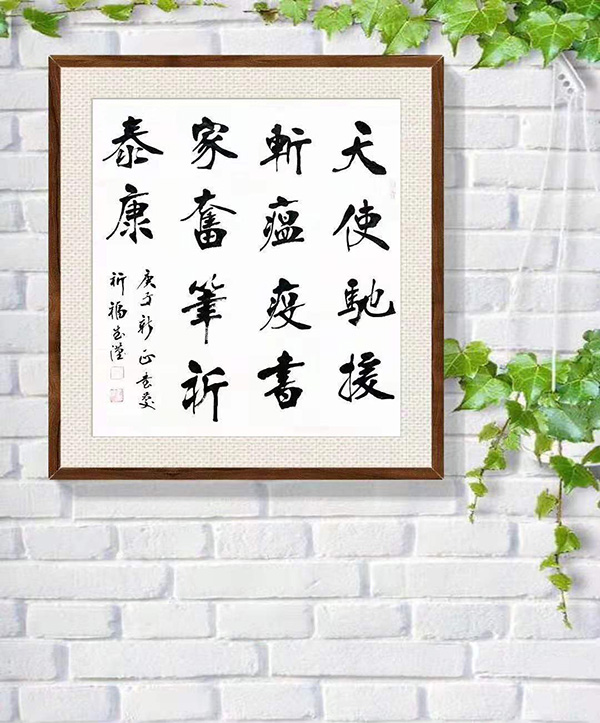 天使馳援
斬瘟疫書
家奮筆祈
泰康
庚子新正
祈福武漢